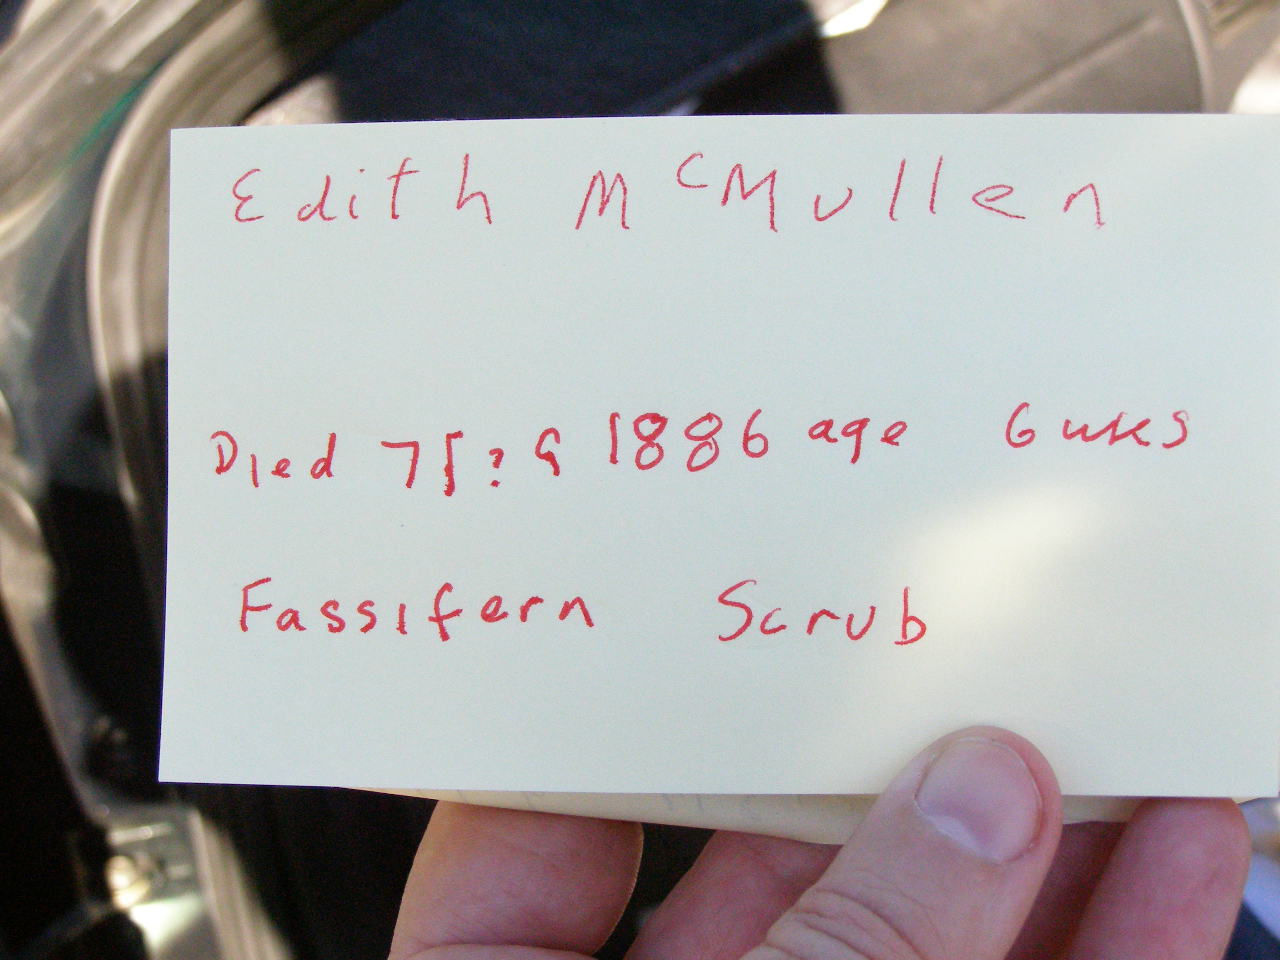 Edith McMullen
Died 7 ? 9 1886 age 6 wks
Fassifern Scrub